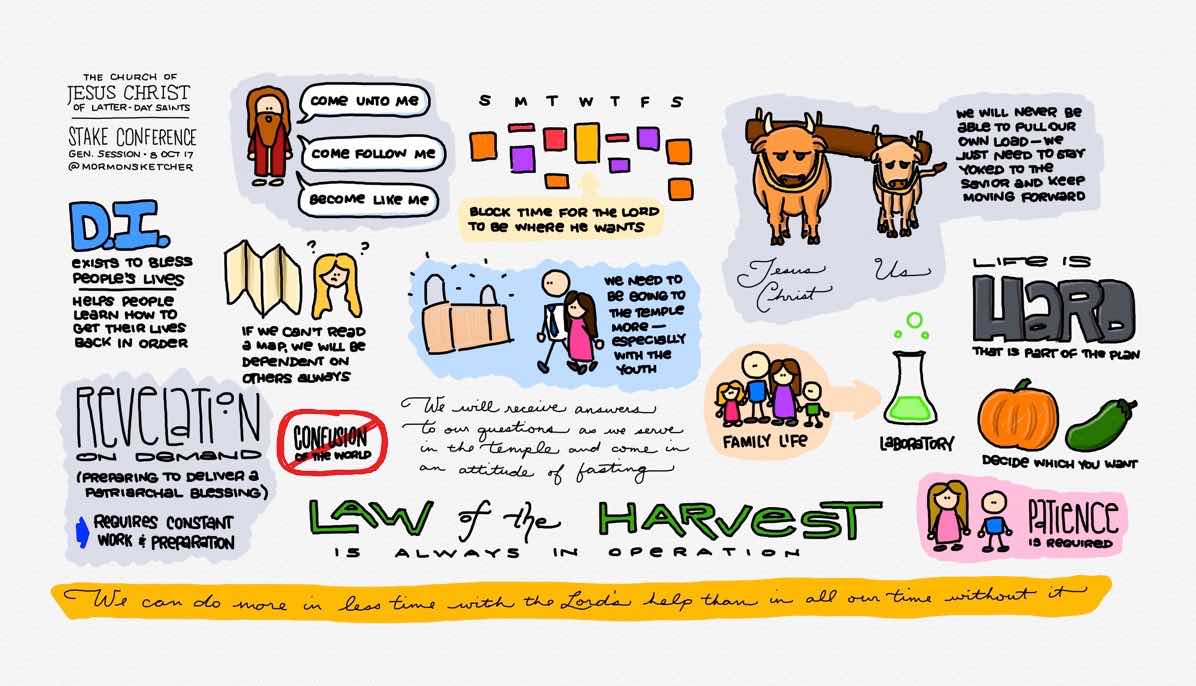 THE CHURCH OF
JESUS CHRIST
OF LATTER-DAY SAINTS
STAKE CONFERENCE
GEN. SESSION • 8 OCT 17
@MORMONSKETCHER
COME UNTO ME
COME FOLLOW ME
BECOME LIKE ME
S M T W T F S
BLOCK TIME FOR THE LORD
TO BE WHERE HE WANTS
WE WILL NEVER BE
ABLE TO PULL OUR
OWN LOAD – WE
JUST NEED TO STAY
YOKED TO THE
SAVIOR AND KEEP
MOVING FORWARD
Jesus
Christ
Us
D.I.
EXISTS TO BLESS
PEOPLE'S LIVES
HELPS PEOPLE
LEARN HOW TO
GET THEIR LIVES
BACK IN ORDER
? ?
IF WE CAN'T READ
A MAP, WE WILL BE
DEPENDENT ON
OTHERS ALWAYS
WE NEED TO
BE GOING TO
THE TEMPLE
MORE –
ESPECIALLY
WITH THE
YOUTH
LIFE IS
HARD
THAT IS PART OF THE PLAN
REVELATION
ON DEMAND
(PREPARING TO DELIVER A
PATRIARCHAL BLESSING)
REQUIRES CONSTANT
WORK & PREPARATION
CONFUSION
OF THE WORLD
We will receive answers
to our questions as we serve
in the temple and come in
an attitude of fasting
FAMILY LIFE
LABORATORY
DECIDE WHICH YOU WANT
LAW of the HARVEST
IS ALWAYS IN OPERATION
PATIENCE
IS REQUIRED
We can do more in less time with the Lord's help than in all our time without it